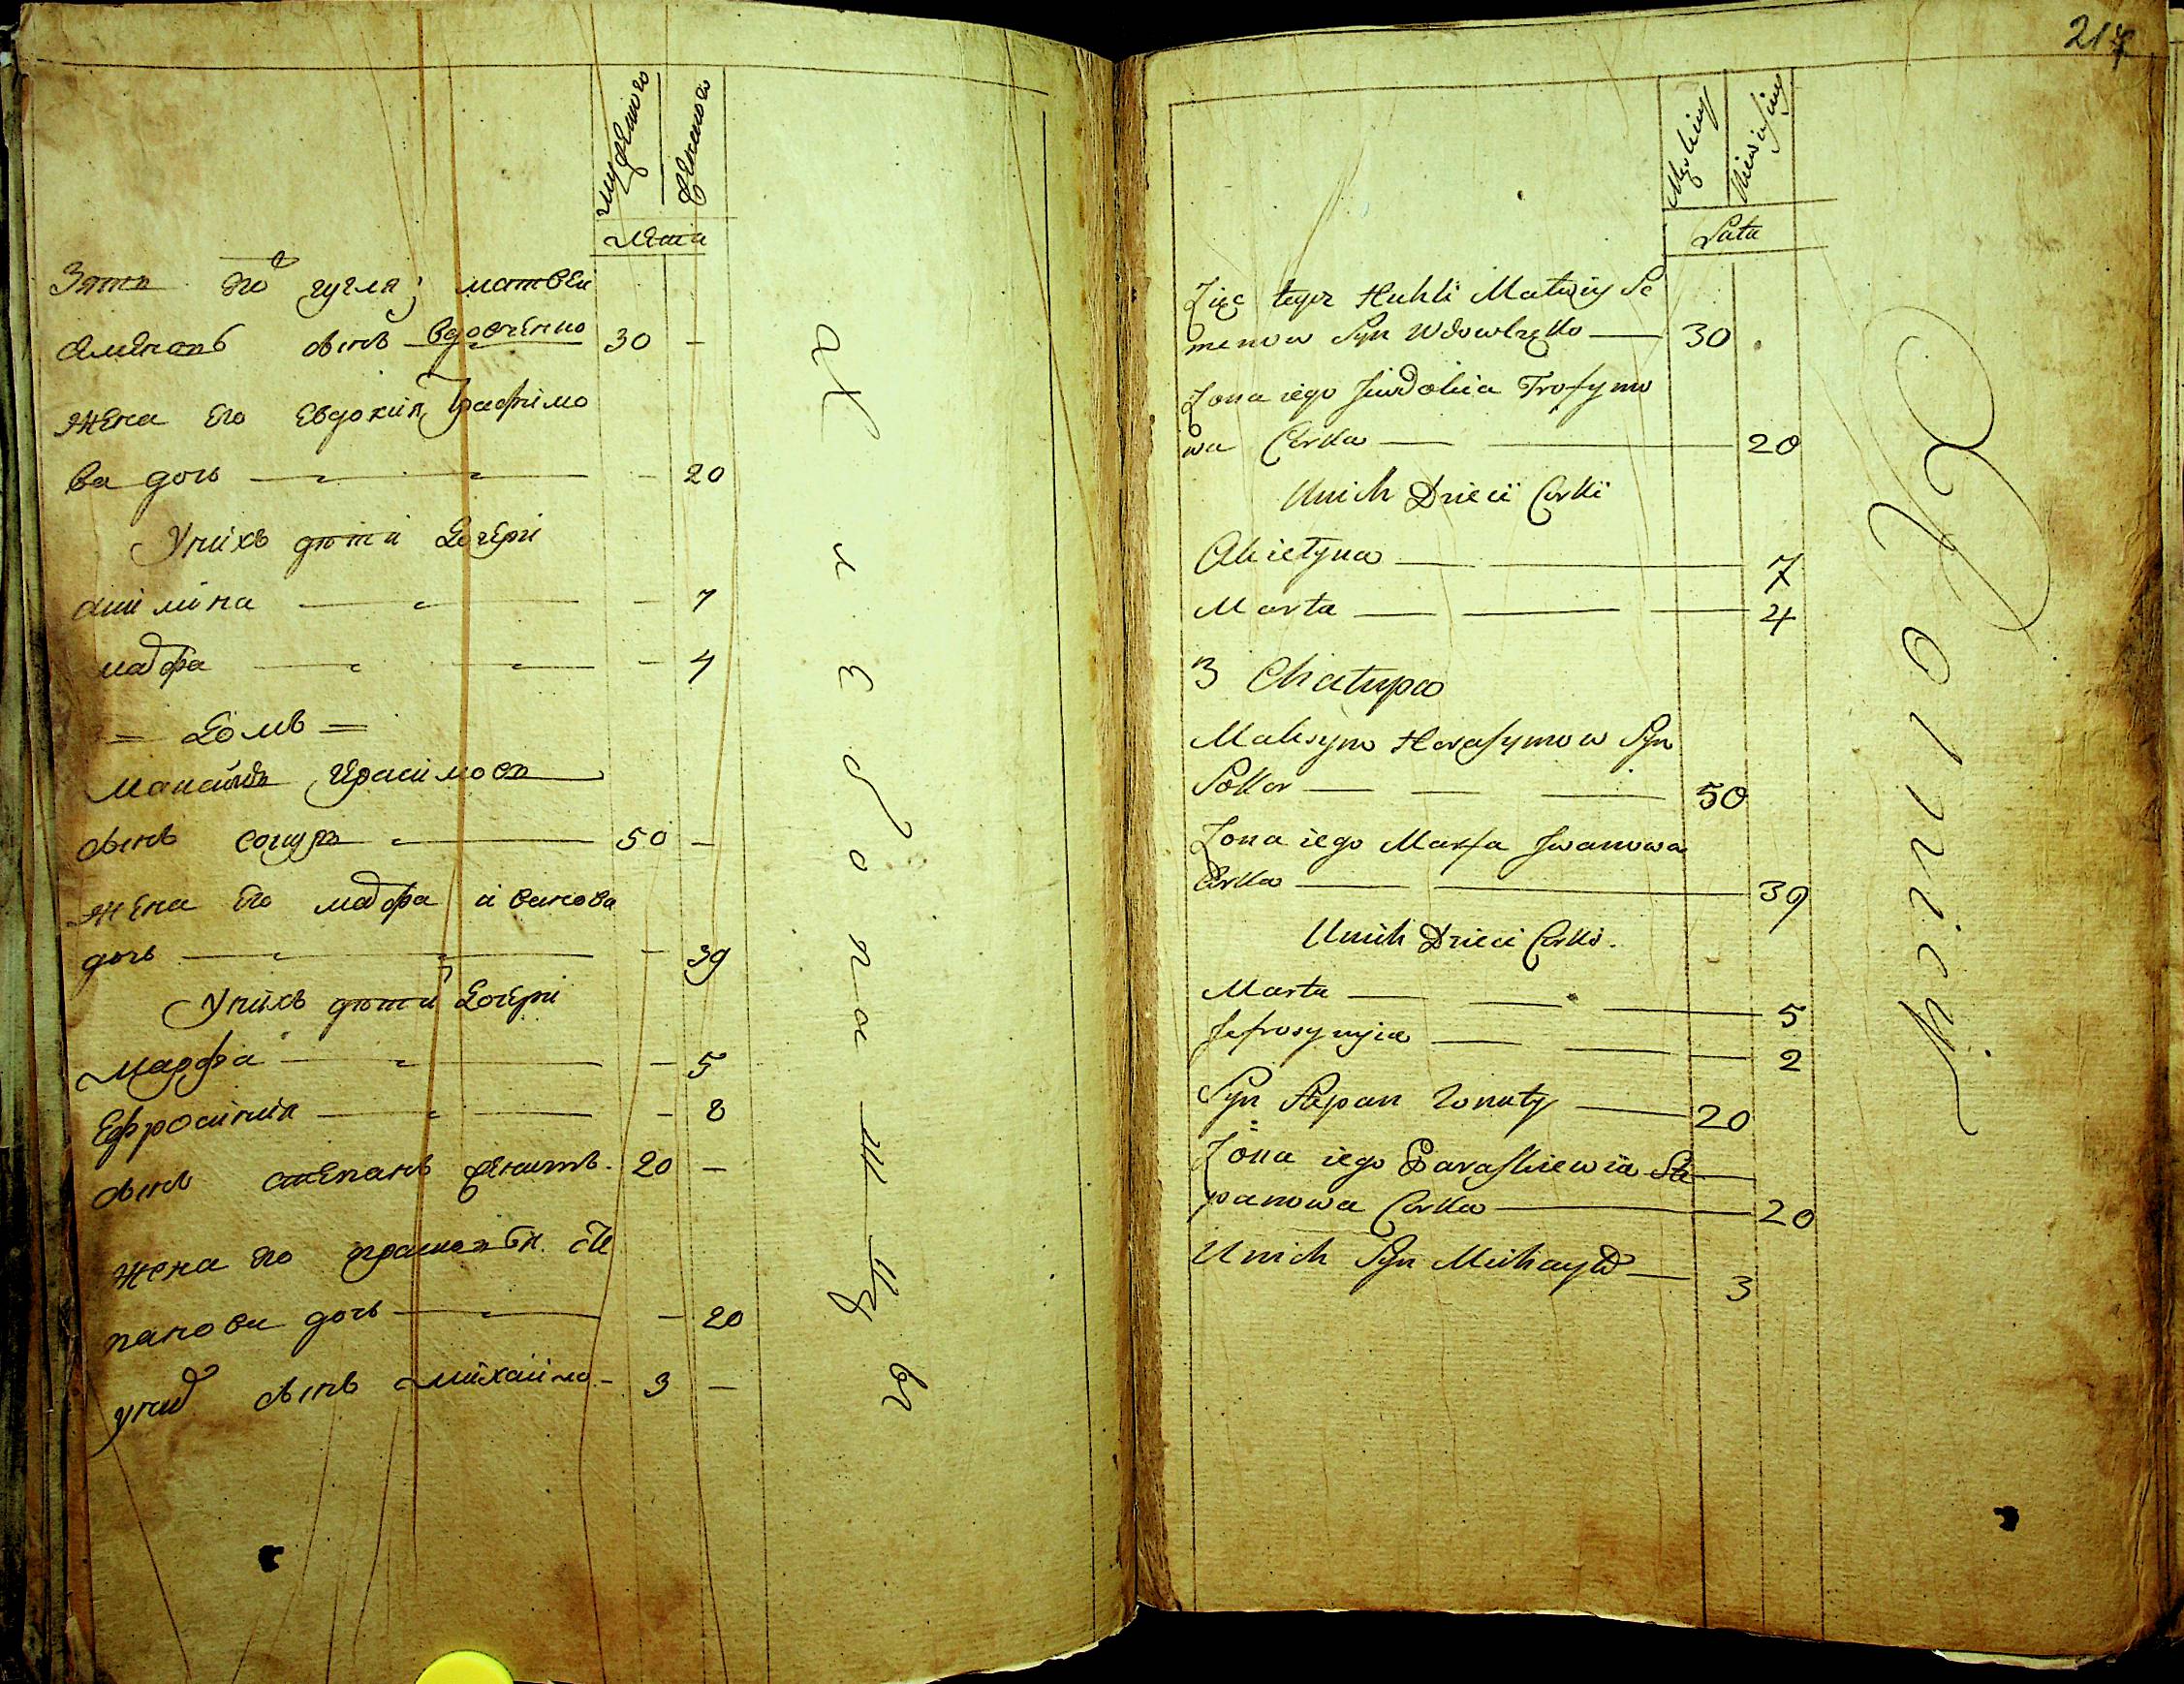 мужеска
женска
Лѣта
Зять его гугля; матвей
Семеновъ сынъ вдовченко 30 -
жена его Евдокия Трафимо
ва дочь - 20
Унихъ дѣти дочери
- 7
марфа - 4
= домъ =
Максимъ Герасимовъ
сынъ 50 -
жена его марфа иванова
дочь - 39
Унихъ дѣти дочери
Марфа - 5
Ефросиния - 2
сынъ степанъ женатъ. 20 -
жена его сте
панова дочь - 20
унихъ сынъ михаило - 3 -
214
Męskiey
Niewieściey
Lata
Zięc tegoż Huhli Matwiy Se
menow Syn Wdowczęko 30
Zona iego Jewdokia Trofymo
wa Corka 20
Unich Dzieci Corki
7
Marta 4
3 Chatupa
Maksym Harasymow Syn
50
Zona iego Marfa Jwanowa
Corka 39
Unich Dzieci Corki.
Marta 5
Jefrosynyia 2
Syn Stepan Zonaty 20
Zona iego Paraskiewia Ste
panowa Corka 20
Unich Syn Michayło 3